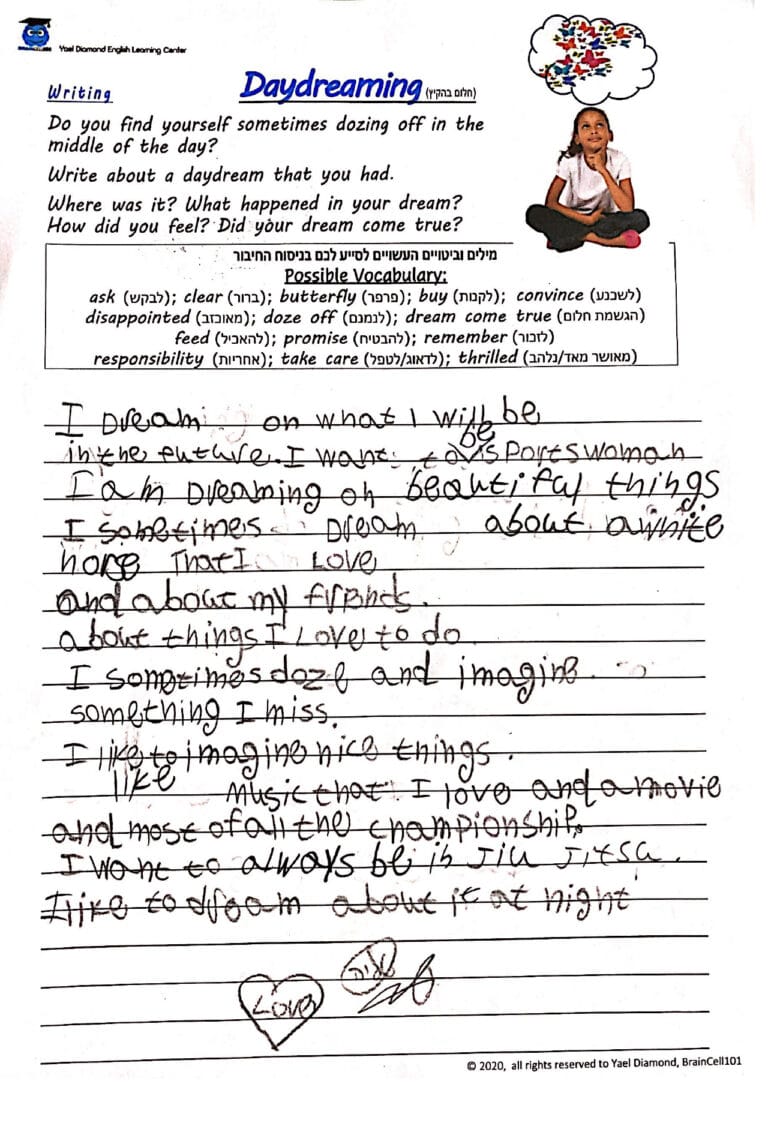 BRAINCELL101
Yael Diamond English Learning Center
Writing
Daydreaming (חלום בהקיץ)
Do you find yourself sometimes dozing off in the
middle of the day?
Write about a daydream that you had.
Where was it? What happened in your dream?
How did you feel? Did your dream come true?
מילים וביטויים העשויים לסייע לכם בניסוח החיבור
Possible Vocabulary:
ask (לבקש); clear (ברור); butterfly (פרפר); buy (לקנות); convince (לשכנע)
disappointed (מאוכזב); doze off (לנמנם); dream come true (הגשמת חלום)
feed (להאכיל); promise (להבטיח); remember (לזכור)
responsibility (אחריות); take care (לדאוג/לטפל); thrilled (מאושר מאד/נלהב)
I Dream on what I will be
in the future. I want to be sportswoman
I am Dreaming on beautiful things
I sometimes Dream about a white
horse That I Love
and about my friends.
about things I Love to do
I sometimes doze and imagine
something I miss.
I like to imagine nice things.
like Music that I love and a movie
and most of all the championship.
I want to always be in Jiu Jitsu.
I like to dream about it at night
Love
© 2020, all rights reserved to Yael Diamond, BrainCell101